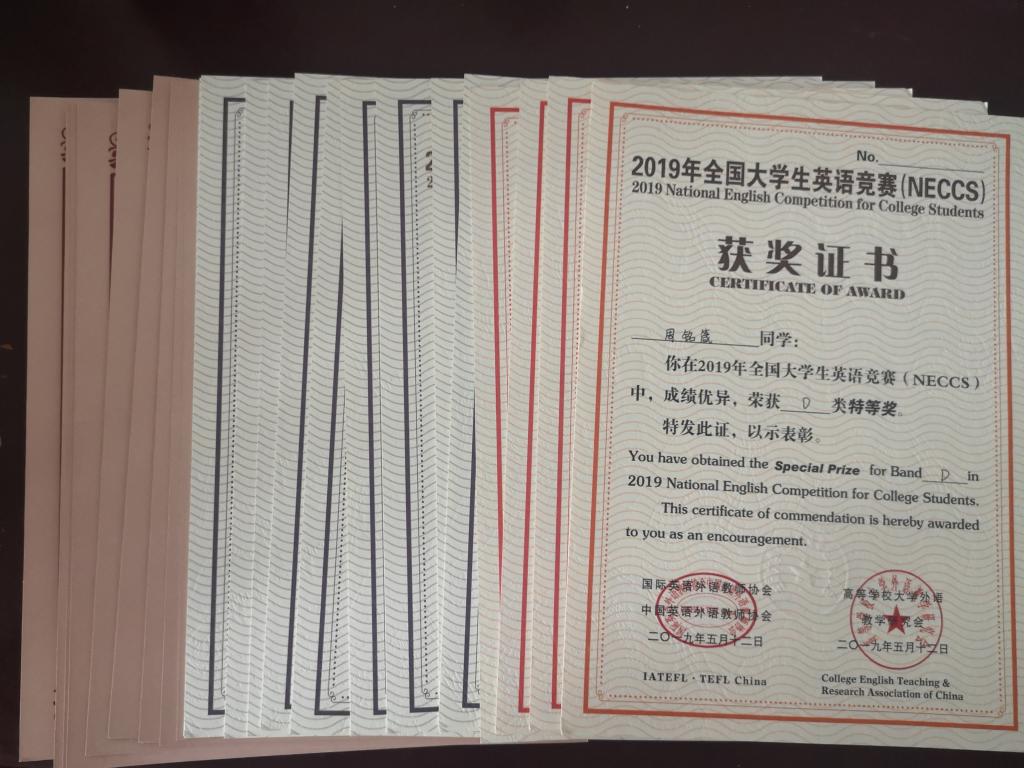 No.
2019年全国大学生英语竞赛(NECCS)
2019 National English Competition for College Students
获奖证书
CERTIFICATE OF AWARD
周铭箴 同学:
你在2019年全国大学生英语竞赛(NECCS)
中,成绩优异,荣获 D 类特等奖。
特发此证,以示表彰。
You have obtained the Special Prize for Band D in
2019 National English Competition for College Students.
This certificate of commendation is hereby awarded
to you as an encouragement.
国际英语外语教师协会
中国英语外语教师协会
二〇一九年五月十二日
IATEFL · TEFL China
高等学校大学外语
教学研究会
二〇一九年五月十二日
College English Teaching &
Research Association of China